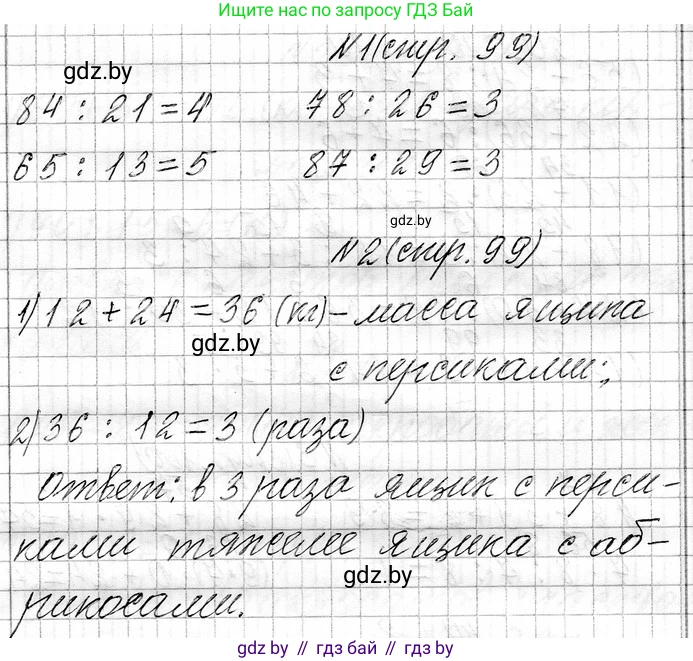 Ищите нас по запросу ГДЗ Бай
N1(стр. 99)
gdz.by
84 : 21 = 4 78 : 26 = 3
65 : 13 = 5 87 : 29 = 3
gdz.by
N2(стр. 99)
1) 12 + 24 = 36 (кг) – масса ящика
gdz.by
с персиками;
2) 36 : 12 = 3 (раза)
Ответ: в 3 раза ящик с перси-
ками тяжелее ящика с аб-
gdz.by
рикосами.
gdz.by // гдз бай // гдз by